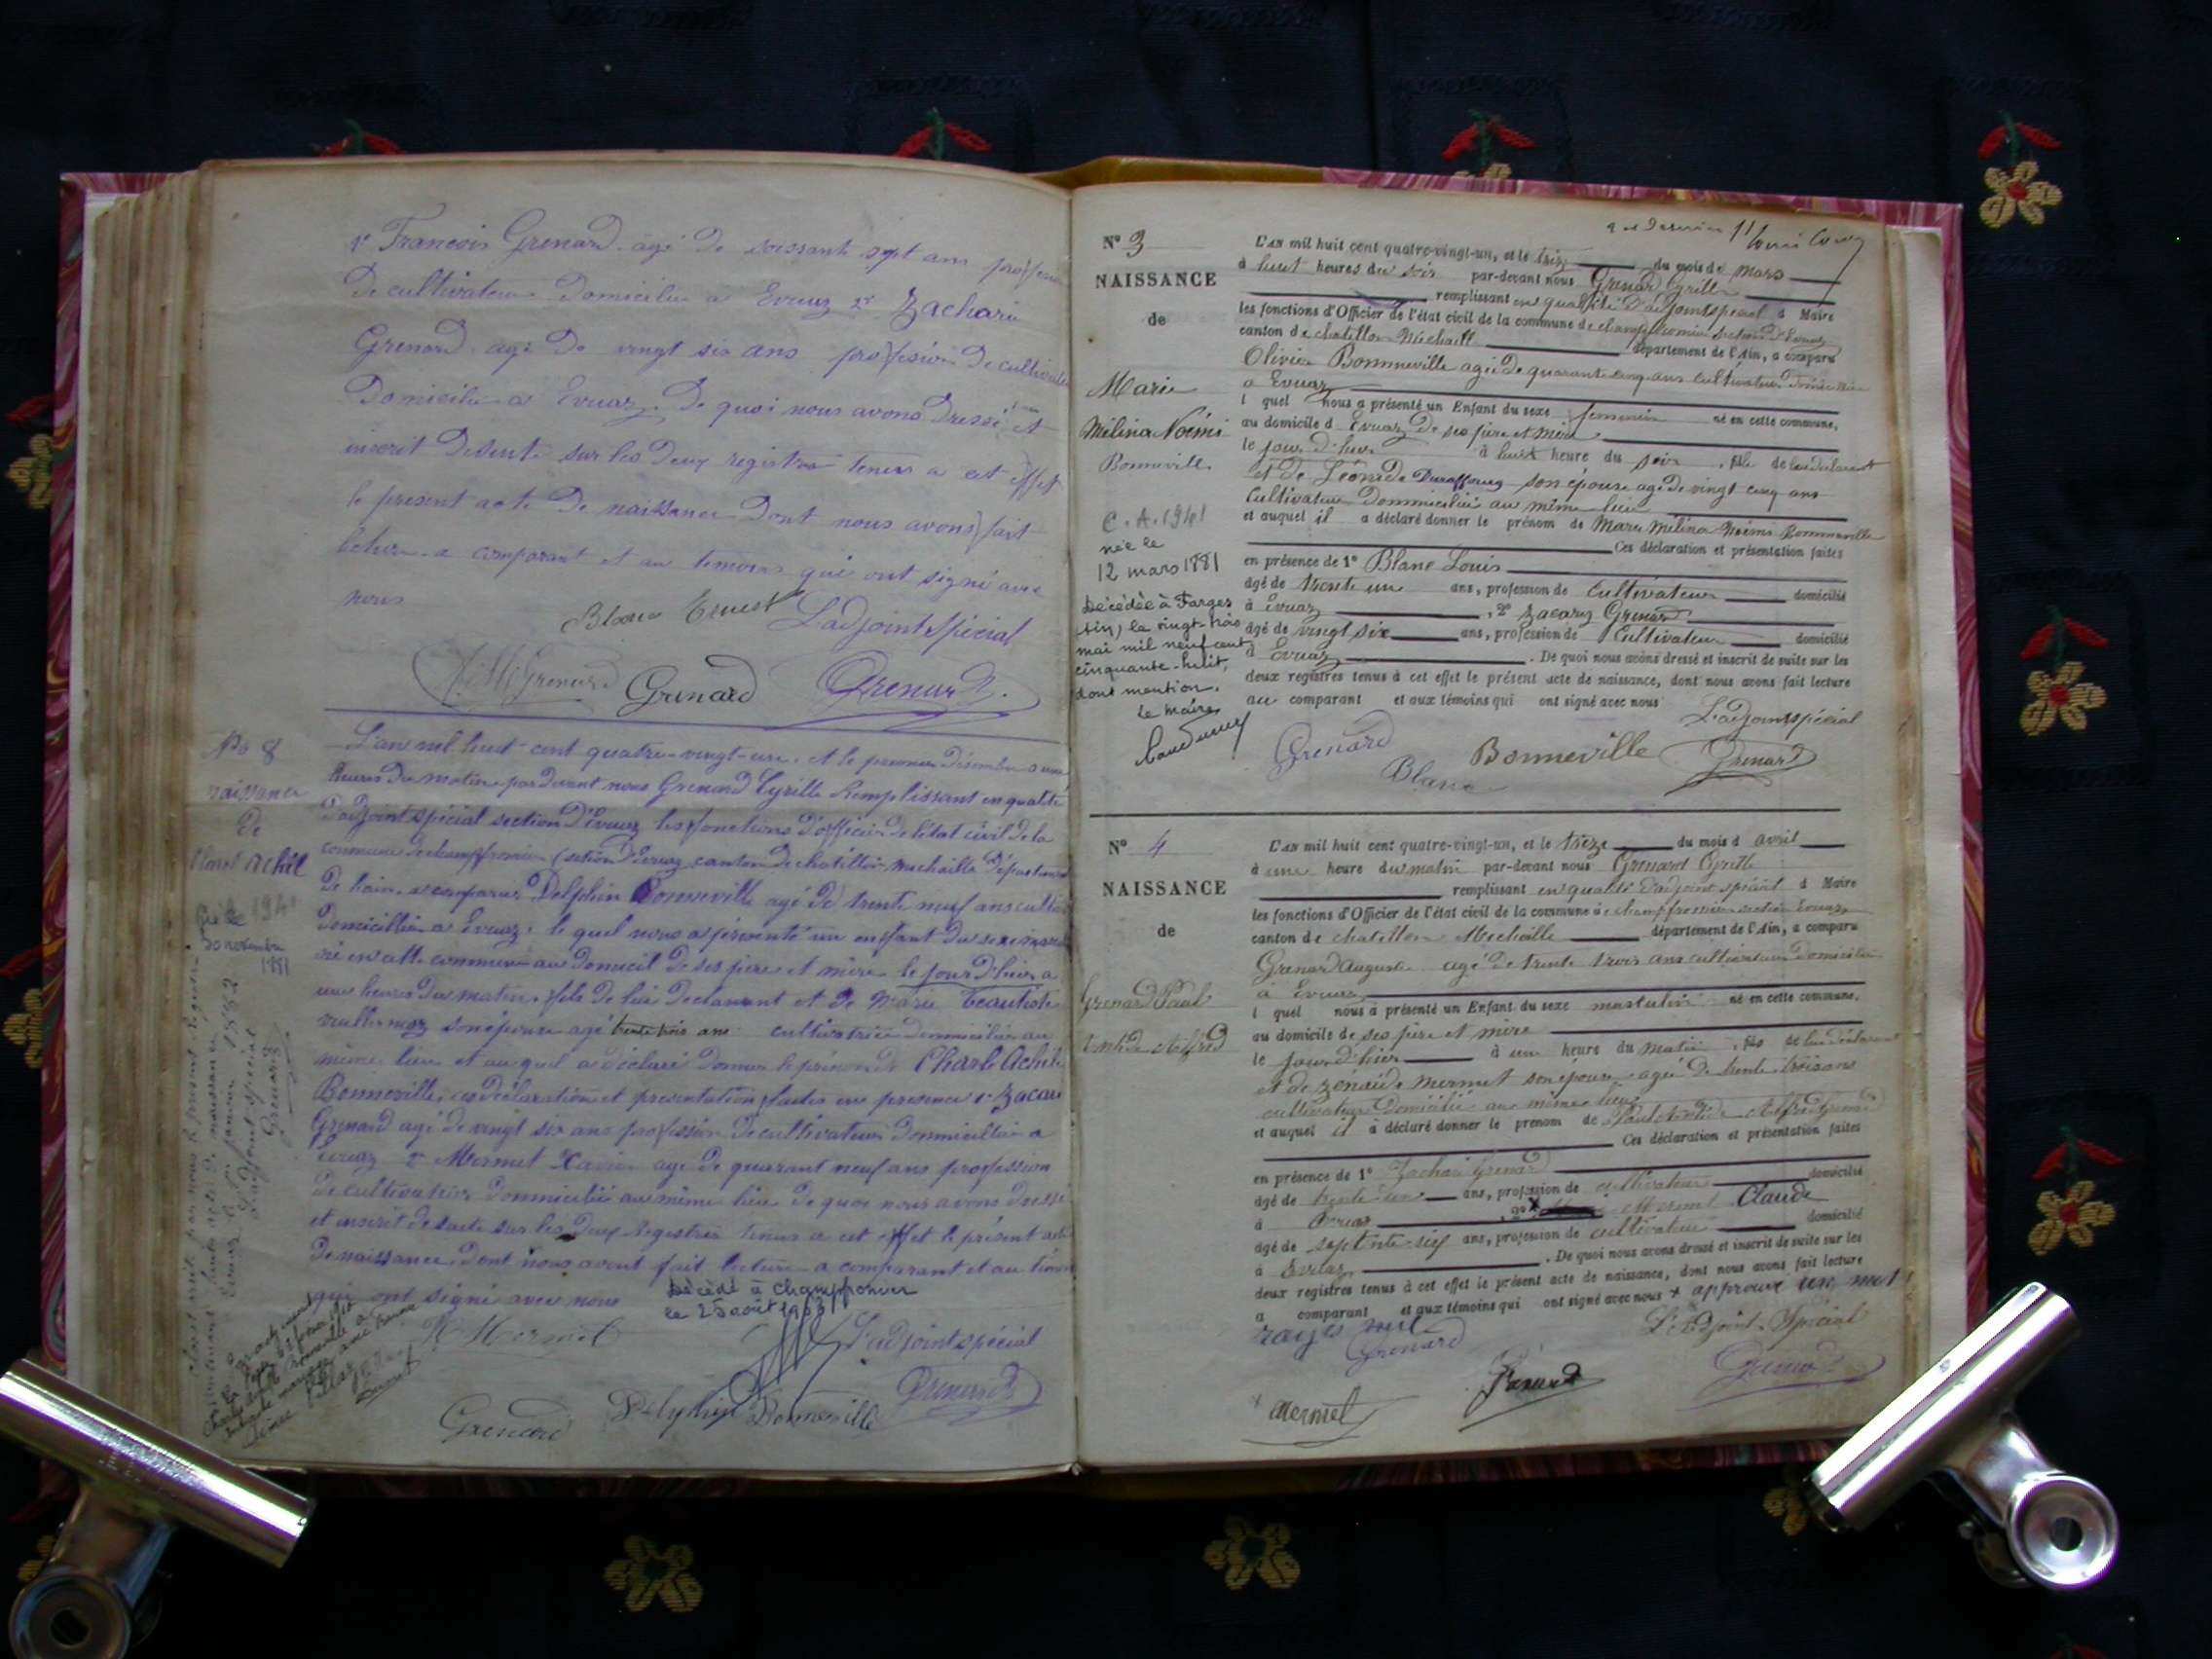 1° François Grenard agé de soissante sept ans profession
de cultivateur domicilié a Evuaz 2° Zacharie
Grenard agé de vingt six ans profession de cultivateur
Domicilié a Evuaz. De quoi nous avons dressé et
inscrit de suite sur les deux registres tenus a cet effet
le present acte de naissance dont nous avons fait
lecture a comparant et au temoins qui ont signé avec
nous
Blanc Ernest L'adjoint spécial
Grenard Grenard Grenard
No 8
naissance
de
Achil
né le
30 novembre
1881
L'an mil huit cent quatre-vingt-un et le premier Décembre a une
heures du matin par devant nous Grenard Cyrille Remplissant en qualité
D'adjoint spécial section D'Evuaz les fonctions D'officier de l'état civil de la
commune de champfromier (section D'Evuaz canton de chatillon michaille Département
De lain a comparu Delphin Bonneville agé de trente neuf ans
domicillié a Evuaz le quel nous a présenté un enfant du sexe
né en cette commune au domicil de ses père et mère le jour d'hier a
une heures du matin fils de lui declarant et de Marie
son épouse agé trente trois ans cultivatrice domiciliée au
même lieu et au quel a déclaré donner le prénom de Charle Achile
Bonneville, ces déclaration et presentation faites en presence 1° Zacarie
Grenard agé de vingt six ans profession de cultivateur Dommicillié a
Evuaz 2° Mermet agé de quarant neuf ans profession
de cultivateur dommicilié au même lieu de quoi nous avons dressé
et inscrit de suite sur les deux registres tenus a cet effet le présent acte
De naissance, dont nous avont fait lecture a comparant et au témoins
qui ont signé avec nous
Décédé à Champfromier
le 25 août
Mermet L'adjoint spécial
Grenard Delphin Bonneville Grenard
N° 3
NAISSANCE
de
Marie
Mélina Noémi
Bonneville
C. A. 1941
née le
12 mars 1881
Décédée à Farges
(Ain) le vingt-trois
mai mil neuf cent
cinquante-huit,
dont mention.
Le maire
L'AN mil huit cent quatre-vingt-un, et le treize du mois de mars
à huit heures du soir par-devant nous Grenard Cyrille
remplissant en qualité d'adjoint spécial d Maire
les fonctions d'Officier de l'état civil de la commune de champfromier section d'Evuaz
canton de chatillon Michaille département de l'Ain, a comparu
Olivier Bonneville agé de quarante cinq ans cultivateur
a Evuaz
l quel nous a présenté un Enfant du sexe feminin né en cette commune,
au domicile d Evuaz de ses père et mère
le jour d'hier à huit heure du soir, fille de lui declarant
et de Léonide Duraffourg son épouse agé de vingt cinq ans
cultivateur dommicilié au même lieu
et auquel il a déclaré donner le prénom de Marie Mélina Noémi Bonneville
Ces déclaration et présentation faites
en présence de 1° Blanc Louis
âgé de trente un ans, profession de cultivateur domicilié
à Evuaz, 2° Zacary Grenard
âgé de vingt six ans, profession de cultivateur domicilié
à Evuaz. De quoi nous avons dressé et inscrit de suite sur les
deux registres tenus à cet effet le présent acte de naissance, dont nous avons fait lecture
au comparant et aux témoins qui ont signé avec nous
L'adjoint spécial
Grenard Bonneville Grenard
Blanc
N° 4
NAISSANCE
de
Grenard Paul
Alfred
L'AN mil huit cent quatre-vingt-un, et le treize du mois d avril
à une heure du matin par-devant nous Grenard Cyrille
remplissant en qualité d'adjoint spécial d Maire
les fonctions d'Officier de l'état civil de la commune de champfromier section Evuaz
canton de chatillon Michaille département de l'Ain, a comparu
Grenard Auguste agé de trente trois ans cultivateur domicilié
à Evuaz
l quel nous a présenté un Enfant du sexe masculin né en cette commune,
au domicile de ses père et mère
le jour d'hier à une heure du matin, fils de lui déclarant
et de Zénaïde Mermet son épouse agé de trente trois ans
cultivateur Domicilié au même lieu
et auquel il a déclaré donner le prénom de Paul Alfred Grenard
Ces déclaration et présentation faites
en présence de 1° Zacharie Grenard
âgé de trente un ans, profession de cultivateur domicilié
à Evuaz, 2° Mermet Claude
âgé de septente six ans, profession de cultivateur domicilié
à Evuaz. De quoi nous avons dressé et inscrit de suite sur les
deux registres tenus à cet effet le présent acte de naissance, dont nous avons fait lecture
a comparant et aux témoins qui ont signé avec nous x approuvé un mot
rayés nul L'Adjoint Spécial
Grenard
Mermet Grenard Grenard